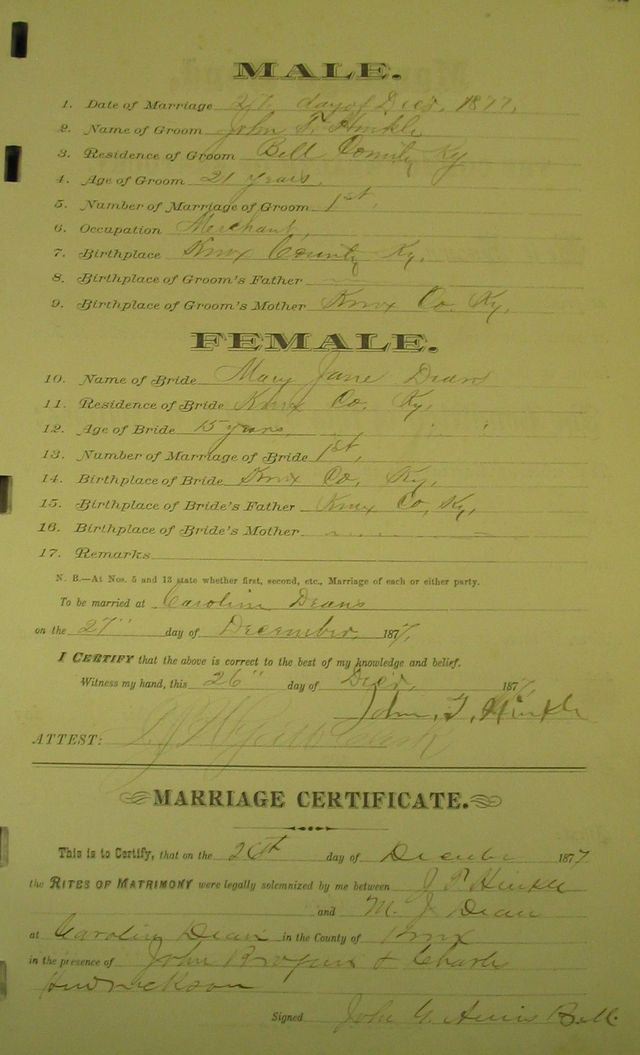 MALE.
1. Date of Marriage 27 day of Decr. 1877.
2. Name of Groom John T. Hinkle
3. Residence of Groom Bell County Ky
4. Age of Groom 21 years
5. Number of Marriage of Groom 1st,
6. Occupation Merchant,
7. Birthplace Knox County Ky.
8. Birthplace of Groom's Father
9. Birthplace of Groom's Mother Knox Co. Ky.
FEMALE.
10. Name of Bride Mary Jane Dean
11. Residence of Bride Knox Co. Ky.
12. Age of Bride 15 years
13. Number of Marriage of Bride 1st,
14. Birthplace of Bride Knox Co, Ky.
15. Birthplace of Bride's Father Knox Co, Ky,
16. Birthplace of Bride's Mother
17. Remarks
N. B.—At Nos. 5 and 13 state whether first, second, etc., Marriage of each or either party.
To be married at Carolin Deans
on the 27" day of December 1877,
I CERTIFY that the above is correct to the best of my knowledge and belief.
Witness my hand, this 26" day of Decr, 1877,
John, T, Hinkle
ATTEST: Clerk
MARRIAGE CERTIFICATE.
This is to Certify, that on the day of December 1877
the RITES OF MATRIMONY were legally solemnized by me between J T Hinkle
and M. J Dean
at Carolin Dean in the County of Knox
in the presence of John & Charle
Signed John G.